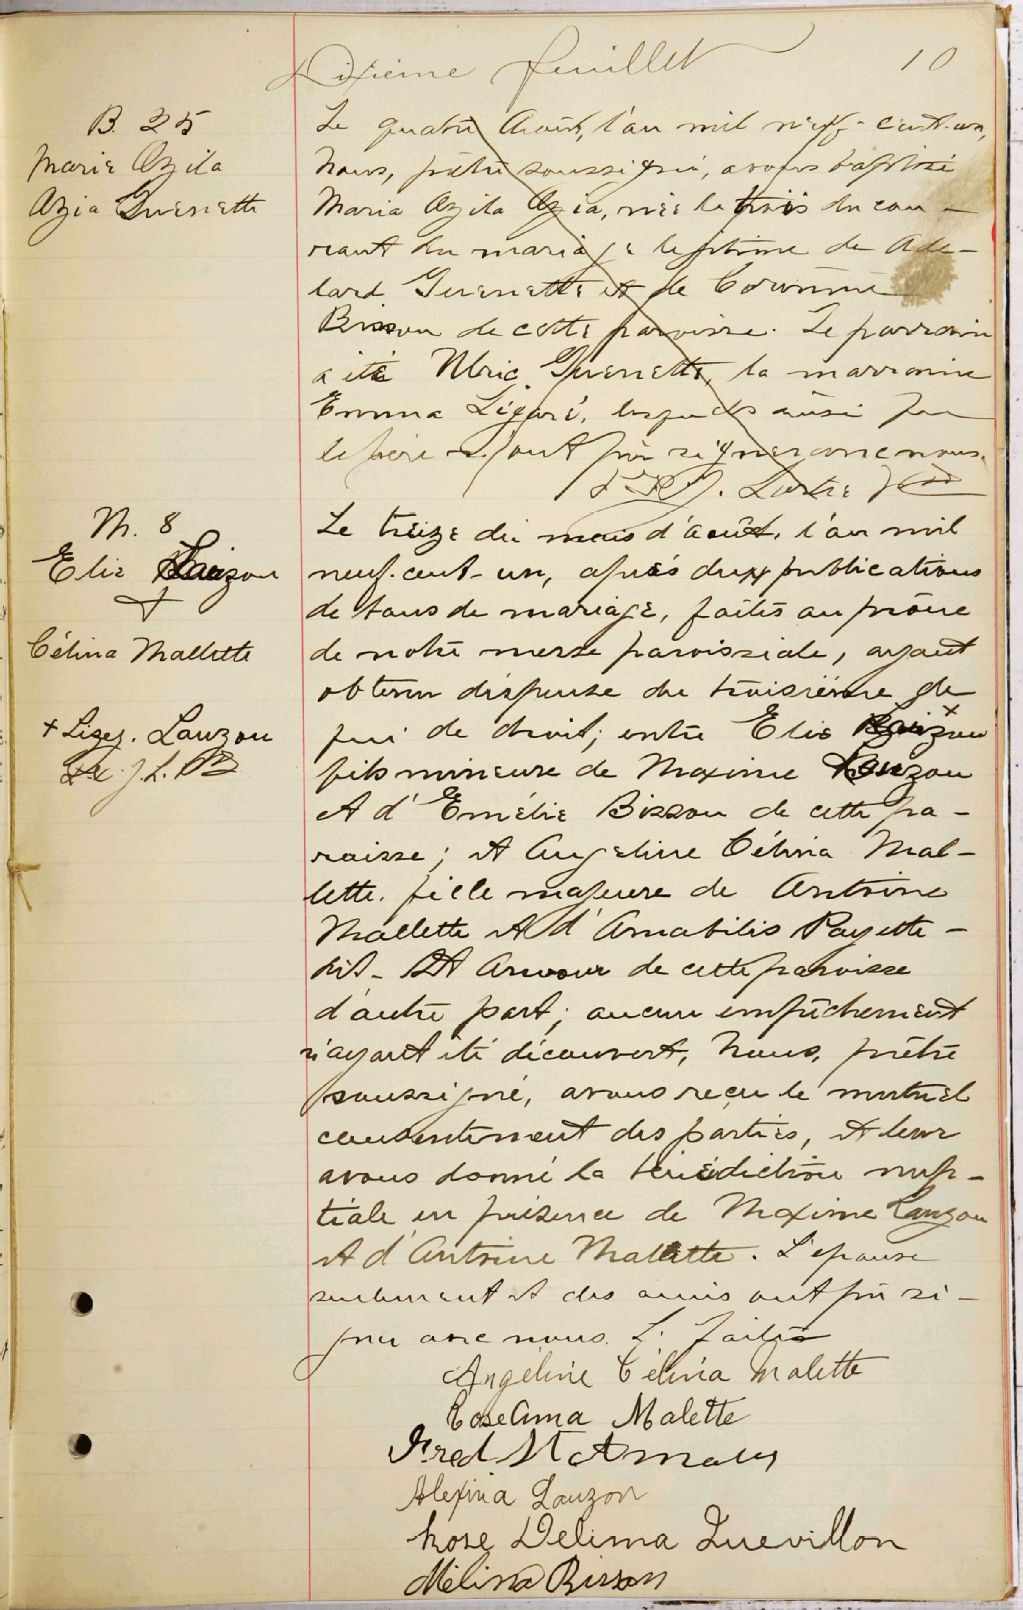 Dixième feuillet 10
B. 25
Marie Azila
Azia Guenette
Le quatre Août, l'an mil neuf-cent-un,
nous, prêtre soussigné, avons baptisé
Maria Azila Azia, née le trois du cou-
rant du mariage légitime de Adé-
lard Guenette et de Corinne
Bisson de cette paroisse. Le parrain
a été Ulric Guenette, la marraine
Emma Légaré, lesquels ainsi que
le père n'ont pu signer avec nous.
M. 8
Elie Lauzon
+
Célina Mallette
+ Lisez. Lauzon
J. L. P
Le treize du mois d'août, l'an mil
neuf-cent-un, après deux publications
de bans de mariage, faites au prône
de notre messe paroissiale, ayant
obtenu dispense du troisième de
qui de droit; entre Elie Lauzon +
fils mineure de Maxime Lauzon
et d'Emélie Bisson de cette pa-
roisse; et Angeline Célina Mal-
lette. fille majeure de Antoine
Mallette et d'Amabilis Payette-
dit-St Amour de cette paroisse
d'autre part; aucun empêchement
n'ayant été découvert, nous, prêtre
soussigné, avons reçu le mutuel
consentement des parties, et leur
avons donné la bénédiction nup-
tiale en présence de Maxime Lauzon
et d'Antoine Mallette. L'épouse
seulement et des amis ont pu si-
gner avec nous.
Angéline Célina Malette
Rose Anna Malette
Fred St Amour
Alexina Lauzon
Rose Delima Quevillon
Mélina Bisson